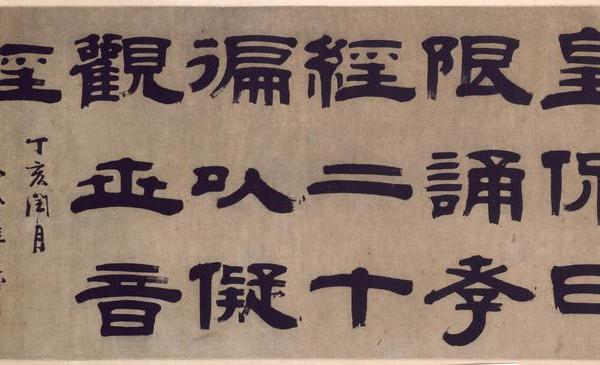 皇侃日
限誦孝
經二十
徧以儗
觀世音
經
丁亥閏月